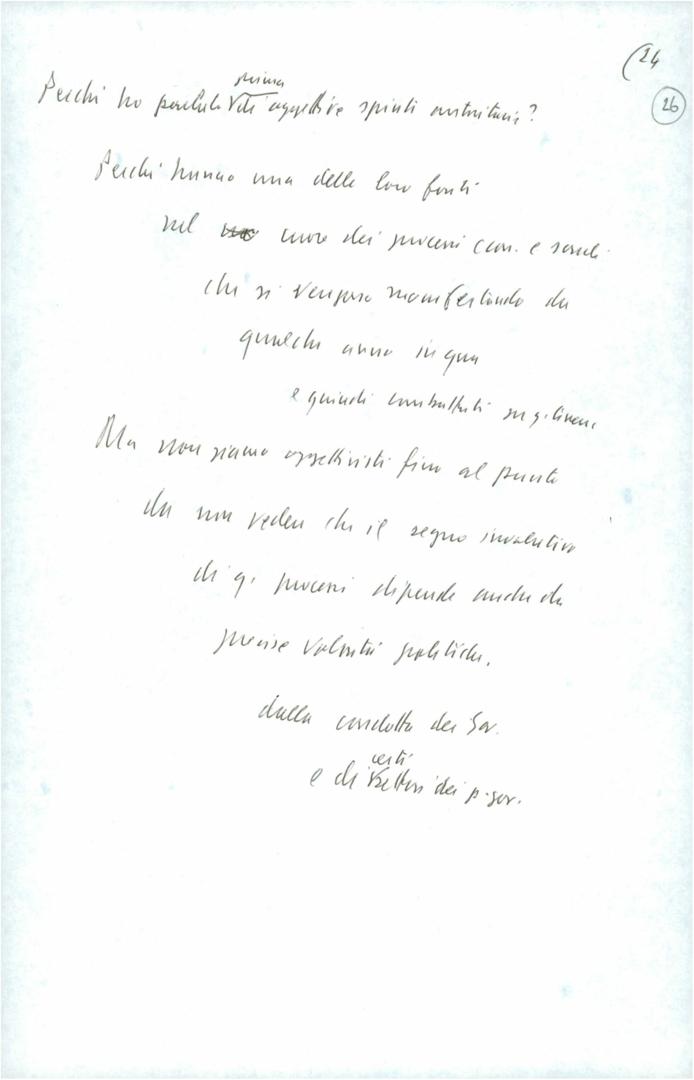 (24
26
prima
Perché ho parlato di oggettive spinte autoritarie?
Perché hanno una delle loro fonti
nel cuore dei processi econ. e sociali
che si vengono manifestando da
qualche anno in qua
e quindi combattuti su q. linea
Ma non siamo oggettivisti fino al punto
da non vedere che il segno involutivo
di q. processi dipende anche da
precise volontà politiche,
dalla condotta del Gov.
certi
e di settori dei p. gov.